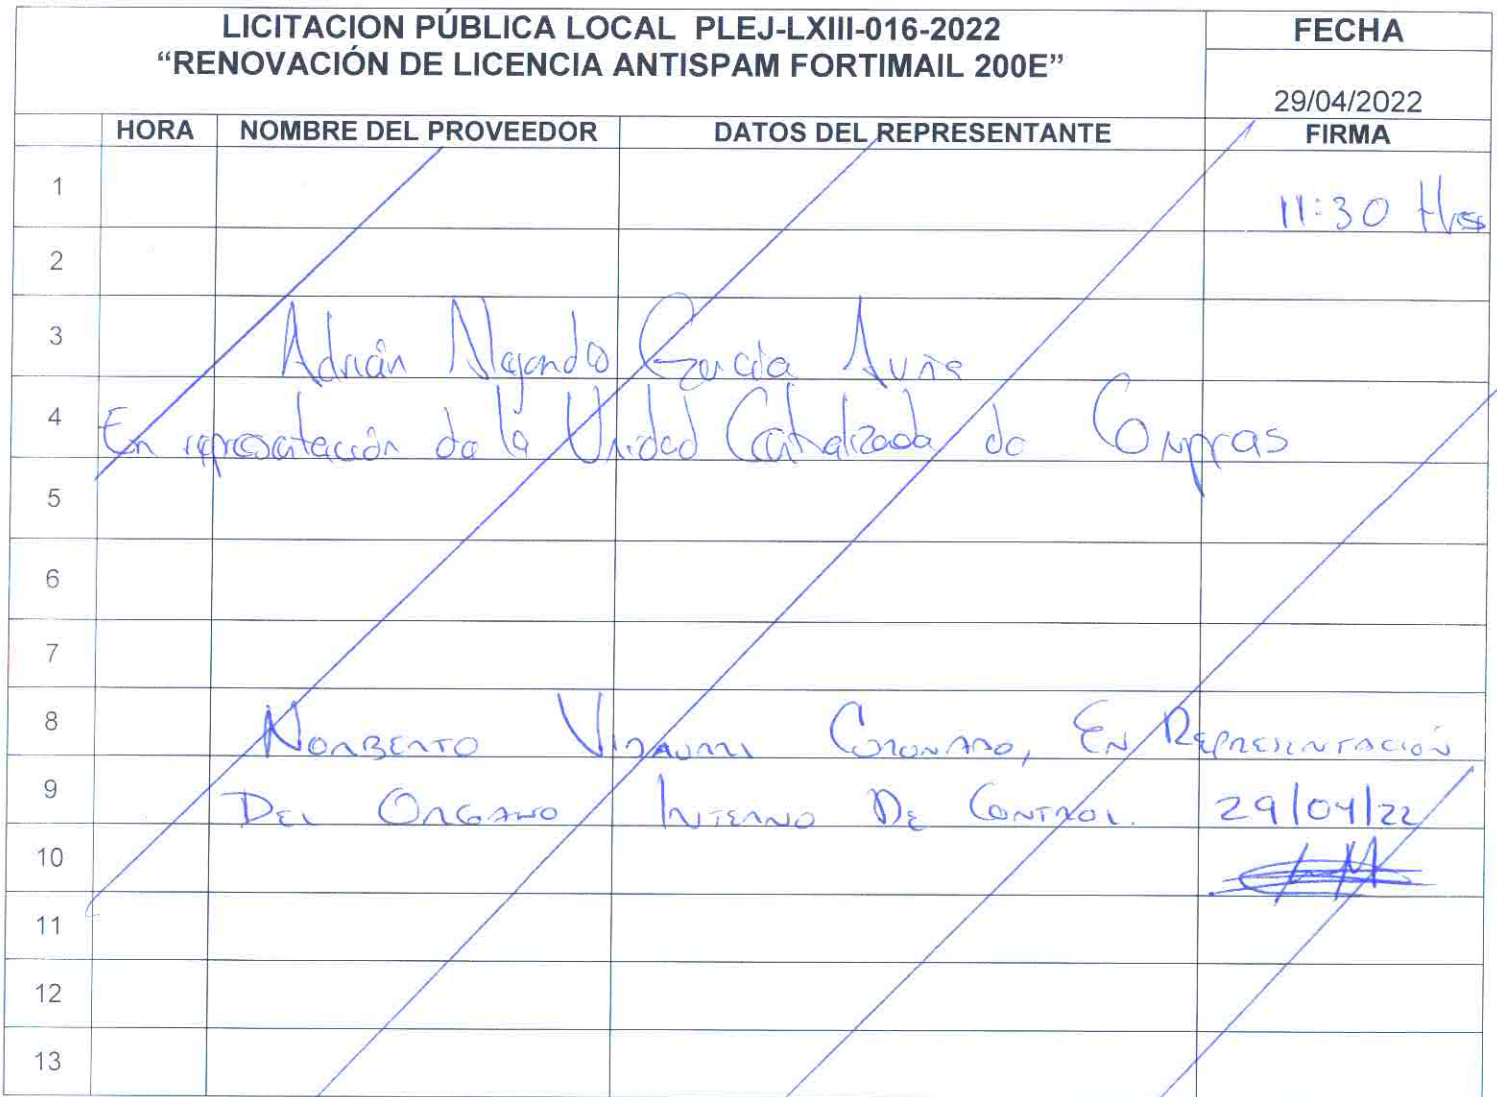 LICITACION PÚBLICA LOCAL PLEJ-LXIII-016-2022
“RENOVACIÓN DE LICENCIA ANTISPAM FORTIMAIL 200E”
FECHA
29/04/2022
HORA NOMBRE DEL PROVEEDOR DATOS DEL REPRESENTANTE FIRMA
1 11:30 Hrs
2
3 Adrián Alejandro García
4 En representación de la Unidad Centralizada de Compras
5
6
7
8 NORBERTO CORONADO, EN REPRESENTACIÓN
9 DEL ORGANO INTERNO DE CONTROL. 29/04/22
10
11
12
13